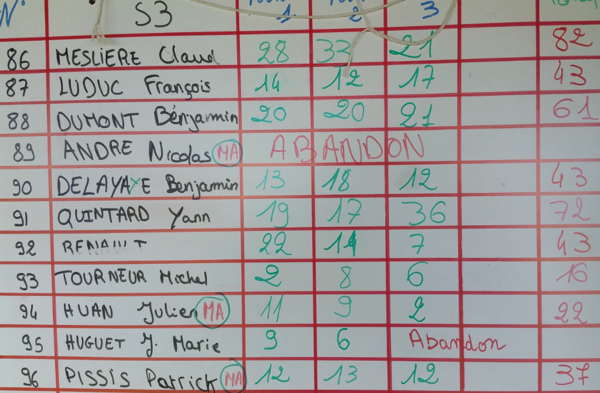 N° S3 1 2 3
86 MESLIERE Claud 28 33 21 82
87 LUDUC François 14 12 17 43
88 DUMONT Bénjamin 20 20 21 61
89 ANDRE Nicolas MA ABANDON
90 DELAYAYE Benjamin 13 18 12 43
91 QUINTARD Yann 19 17 36 72
92 22 14 7 43
93 TOURNEUR Michel 2 8 6 16
94 HUAN Julien MA 11 9 2 22
95 HUGUET J. Marie 9 6 Abandon
96 PISSIS Patrick MA 12 13 12 37